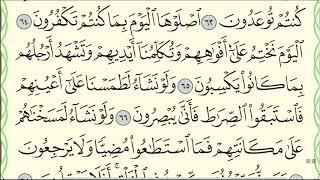 كُنتُمْ تُوعَدُونَ ٦٣ ٱصْلَوْهَا ٱلْيَوْمَ بِمَا كُنتُمْ تَكْفُرُونَ ٦٤
ٱلْيَوْمَ نَخْتِمُ عَلَىٰٓ أَفْوَٰهِهِمْ وَتُكَلِّمُنَآ أَيْدِيهِمْ وَتَشْهَدُ أَرْجُلُهُم
بِمَا كَانُوا۟ يَكْسِبُونَ ٦٥ وَلَوْ نَشَآءُ لَطَمَسْنَا عَلَىٰٓ أَعْيُنِهِمْ
فَٱسْتَبَقُوا۟ ٱلصِّرَٰطَ فَأَنَّىٰ يُبْصِرُونَ ٦٦ وَلَوْ نَشَآءُ لَمَسَخْنَٰهُمْ
عَلَىٰ مَكَانَتِهِمْ فَمَا ٱسْتَطَٰعُوا۟ مُضِيًّا وَلَا يَرْجِعُونَ